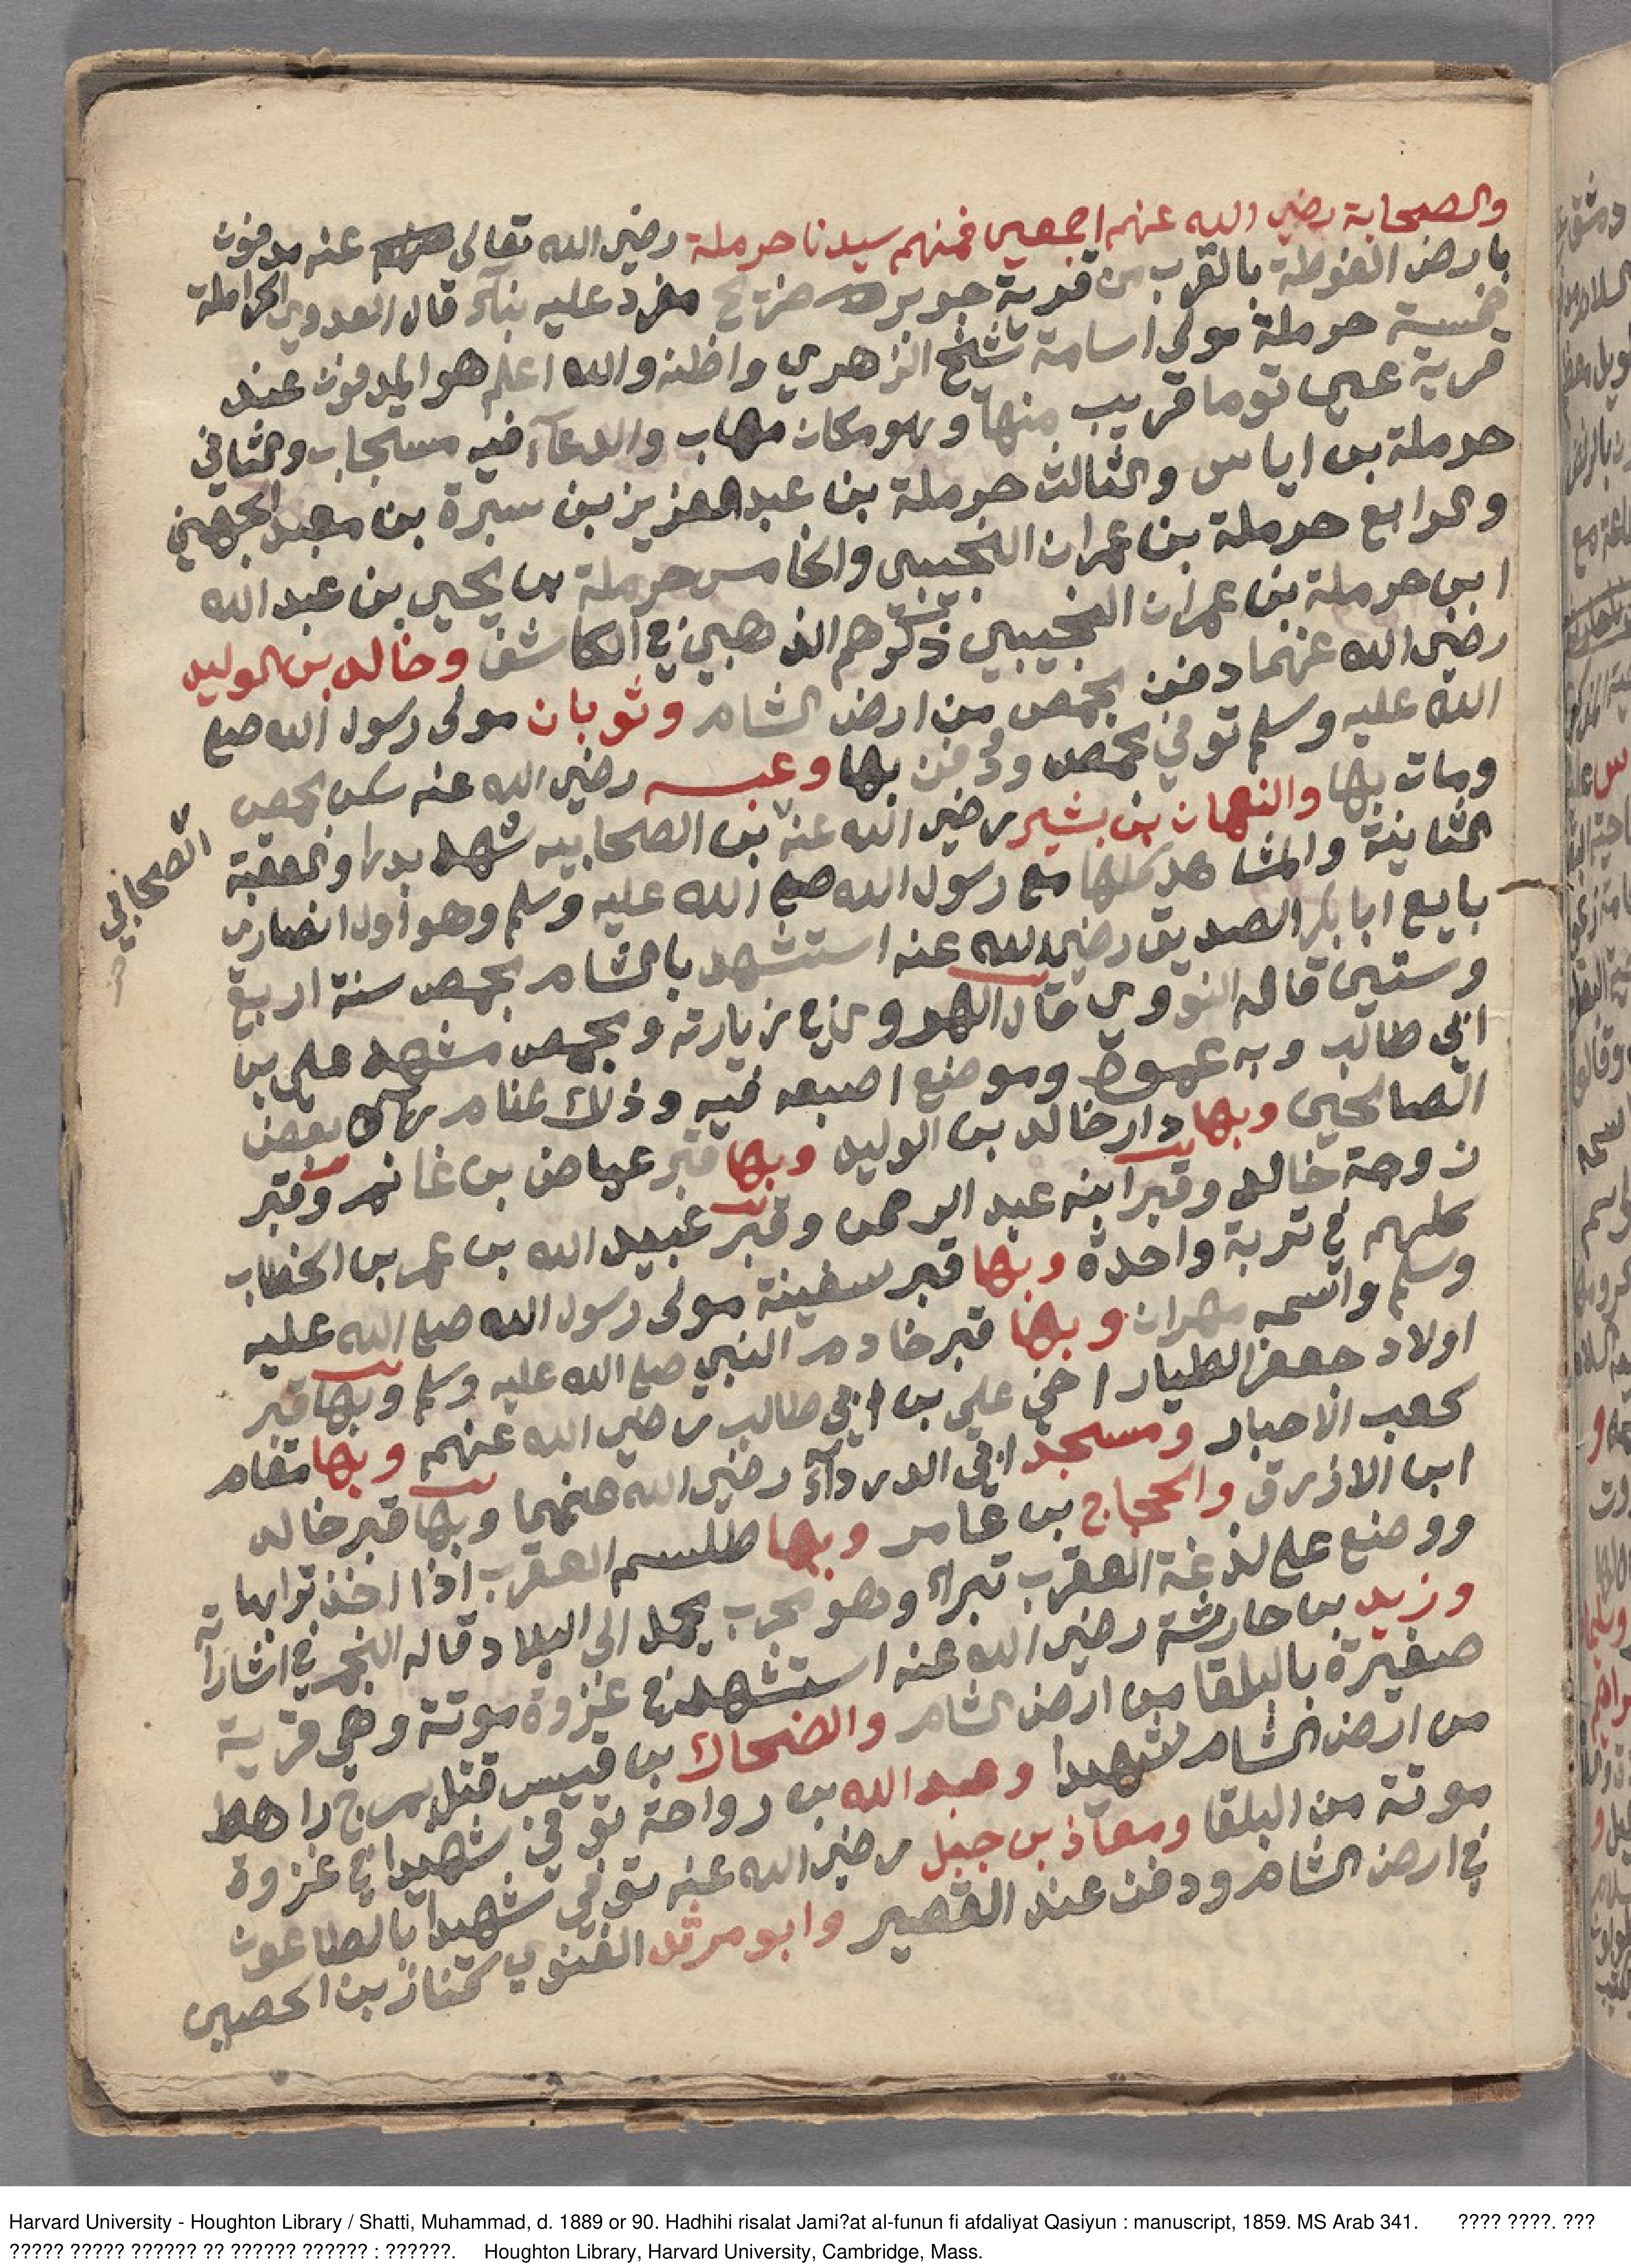 والصحابة رضي الله عنهم اجمعين فمنهم سيدنا حرملة رضي الله تعالى عنه مدفون
بارض الغوطة بالقرب من قرية جوبر ضريح مفرد عليه بناء قال العدوي الحراملة
خمسة حرملة مولى اسامة شيخ الزهري واظنه والله اعلم هو المدفون عند
قرية عين توما قريب منها وهو مكان مهاب والدعاء فيه مستجاب والثاني
حرملة بن اياس والثالث حرملة بن عبد العزيز بن سبرة بن معبد الجهني
والرابع حرملة بن عمران التجيبي والخامس حرملة بن يحيى بن عبد الله
ابن حرملة بن عمران التجيبي ذكرهم الذهبي في الكاشف وخالد بن الوليد
رضي الله عنهما دفن بحمص من ارض الشام وثوبان مولى رسول الله صلى
الله عليه وسلم توفي بحمص ودفن بها وعبسه رضي الله عنه سكن بحمص
ومات بها والنعمان بن بشير رضي الله عنه بن الصحابيه شهد بدرا والعقبة
الصحابي
الثانية والمشاهد كلها مع رسول الله صلى الله عليه وسلم وهو اول انصاري
بايع ابا بكر الصديق رضي الله عنه استشهد بالشام بحمص سنة اربع
وستين قاله النووي قال الهروي في زيارته وبحمص مشهد علي بن
ابي طالب وبه عمود وموضع اصبعه فيه وذلك لمنام رآه بعض
الصالحين وبها دار خالد بن الوليد وبها قبر عياض بن غانم وقبر
زوجة خالد وقبر ابنه عبد الرحمن وقبر عبيد الله بن عمر بن الخطاب
كلهم في تربة واحدة وبها قبر سفينة مولى رسول الله صلى الله عليه
وسلم واسمه مهران وبها قبر خادم النبي صلى الله عليه وسلم وبها قبر
اولاد جعفر الطيار اخي علي بن ابي طالب رضي الله عنهم وبها مقام
كعب الاحبار ومسجد ابي الدرداء رضي الله عنهما وبها قبر خالد
ابن الازرق والحجاج بن عامر وبها طلسم العقرب اذا اخذ ترابها
ووضع على لذغة العقرب تبراء وهو مجرب يحمل الى البلاد قاله النجم في اشاراته
وزيد بن حارثة رضي الله عنه استشهد في غزوة موتة وهي قرية
صغيرة بالبلقا من ارض الشام والضحاك بن قيس قتل بمرج راهط
من ارض الشام شهيدا وعبد الله بن رواحة توفي شهيدا في غزوة
موتة من البلقا ومعاذ بن جبل رضي الله عنه توفي شهيدا بالطاعون
في ارض الشام ودفن عند القصير وابو مرثد الغنوي كناز بن الحصين
Harvard University - Houghton Library / Shatti, Muhammad, d. 1889 or 90. Hadhihi risalat Jami?at al-funun fi afdaliyat Qasiyun : manuscript, 1859. MS Arab 341. ???? ????. ???
????? ????? ?????? ?? ?????? ?????? : ??????. Houghton Library, Harvard University, Cambridge, Mass.